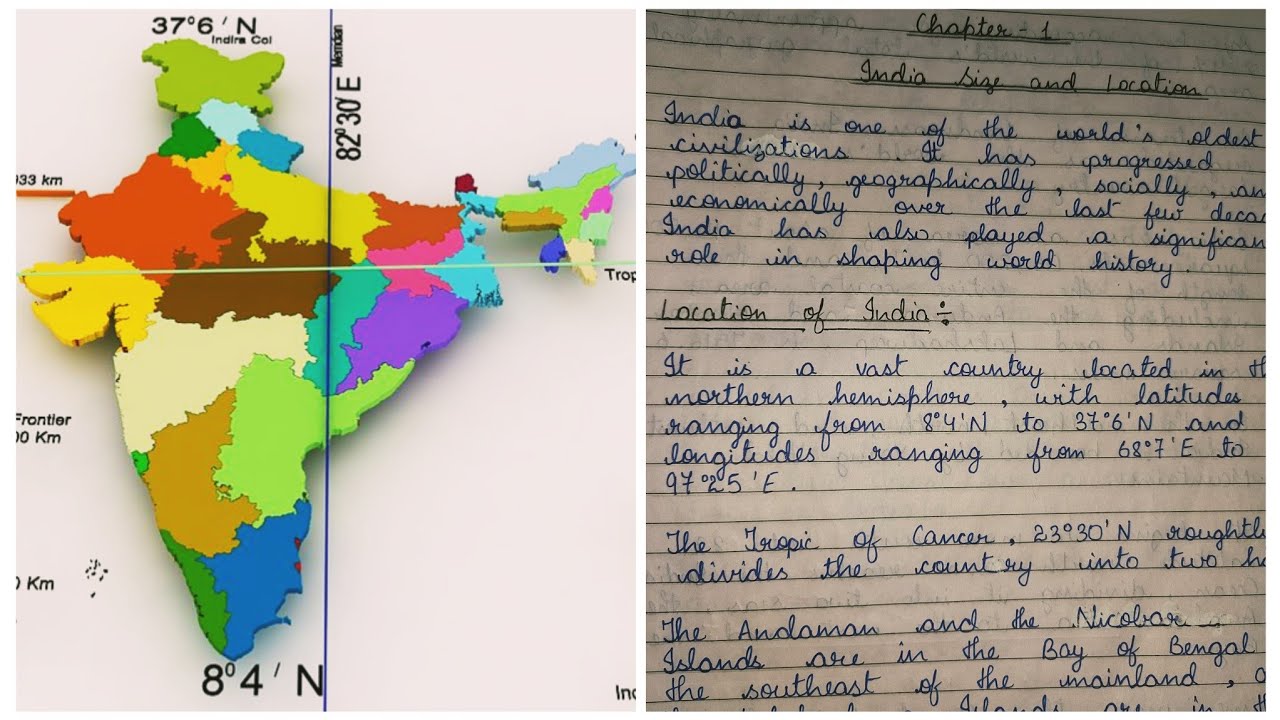 37°6' N
Indira Col
Meridian
82°30' E
933 km
Trop
Frontier
00 Km
0 Km
8°4' N
Inc
Chapter - 1
India Size and Location
India is one of the world's oldest
civilizations. It has progressed
politically, geographically, socially, an
economically over the last few decad
India has also played a significan
role in shaping world history.
Location of India÷
It is a vast country located in th
northern hemisphere, with latitudes
ranging from 8°4'N to 37°6'N and
longitudes ranging from 68°7'E to
97°25'E.
The Tropic of Cancer, 23°30'N roughtl
divides the country into two ha
The Andaman and the Nicobar
Islands are in the Bay of Bengal
the southeast of the mainland,
Islands are in th